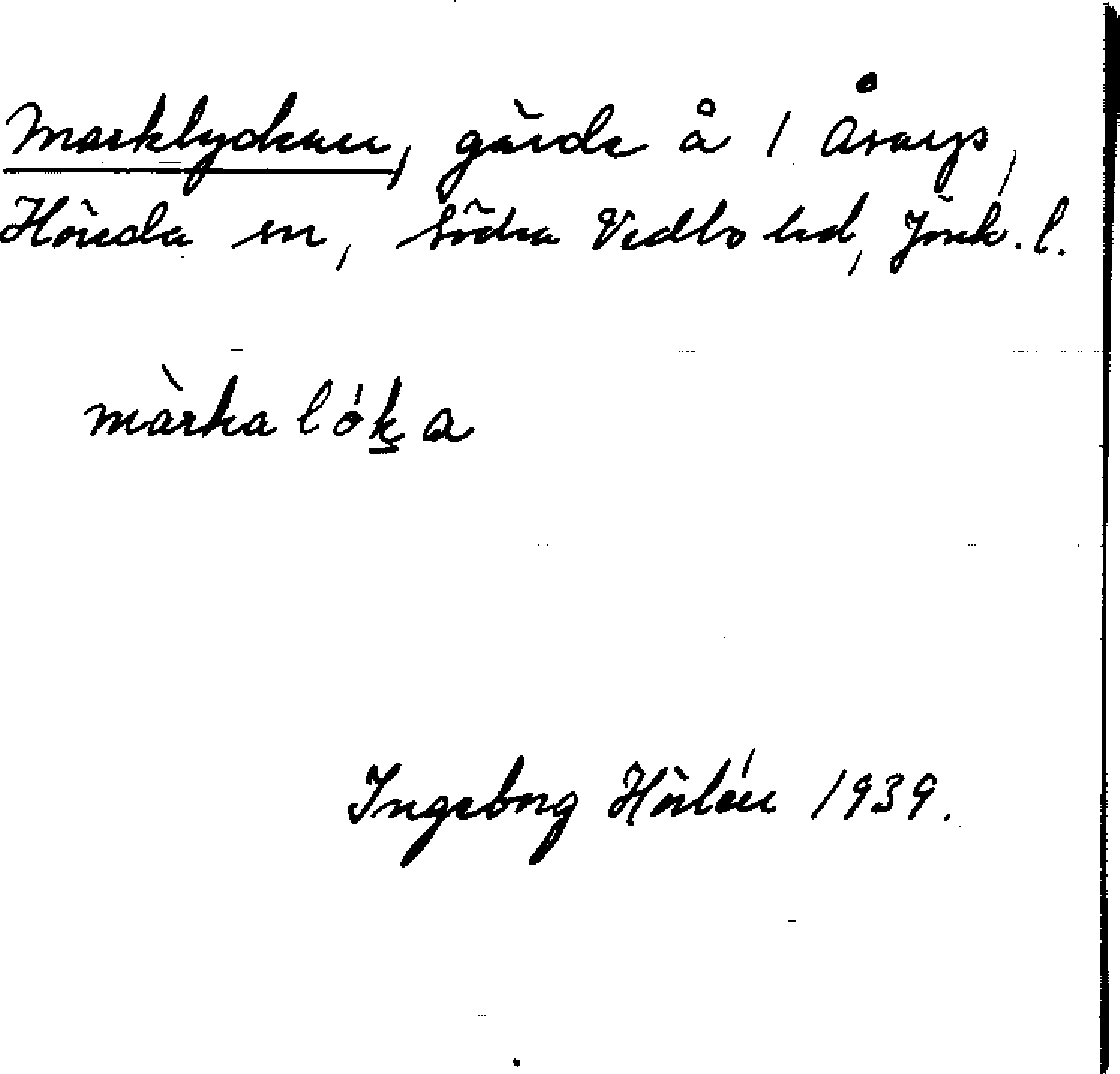 Marklyckan, gärde å 1 Åsarp,
Höreda sn, Södra Vedbo hd, Jönk. l.
màrka lóka
Ingeborg Hörlén 1939.